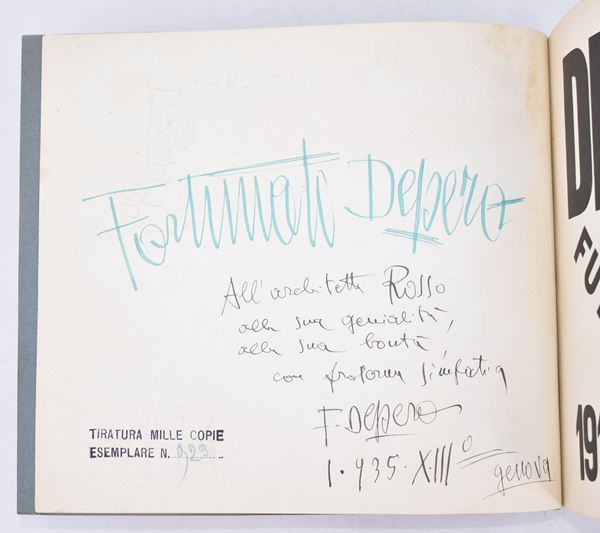 Fortunato Depero
All'architetto Rosso
alla sua genialità,
alla sua bontà,
con profonda simpatia
F. Depero
1·935·XIIIº
genova
TIRATURA MILLE COPIE
ESEMPLARE N.
DE
FU
191